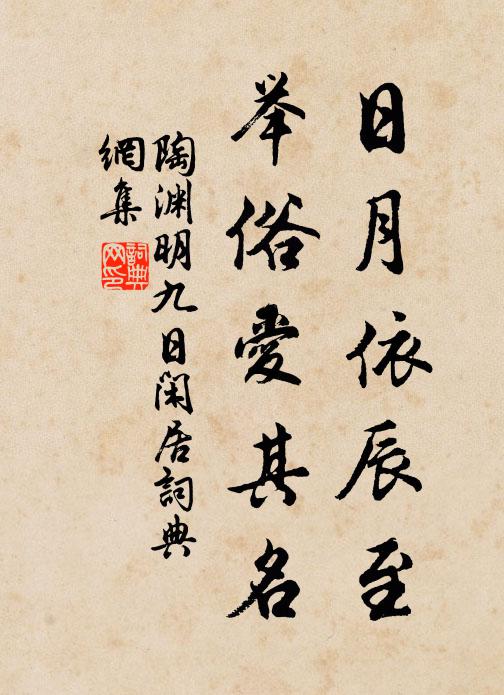 日月依辰至
举俗愛其名
陶渊明九日闲居詞典
網集
詞典
网印